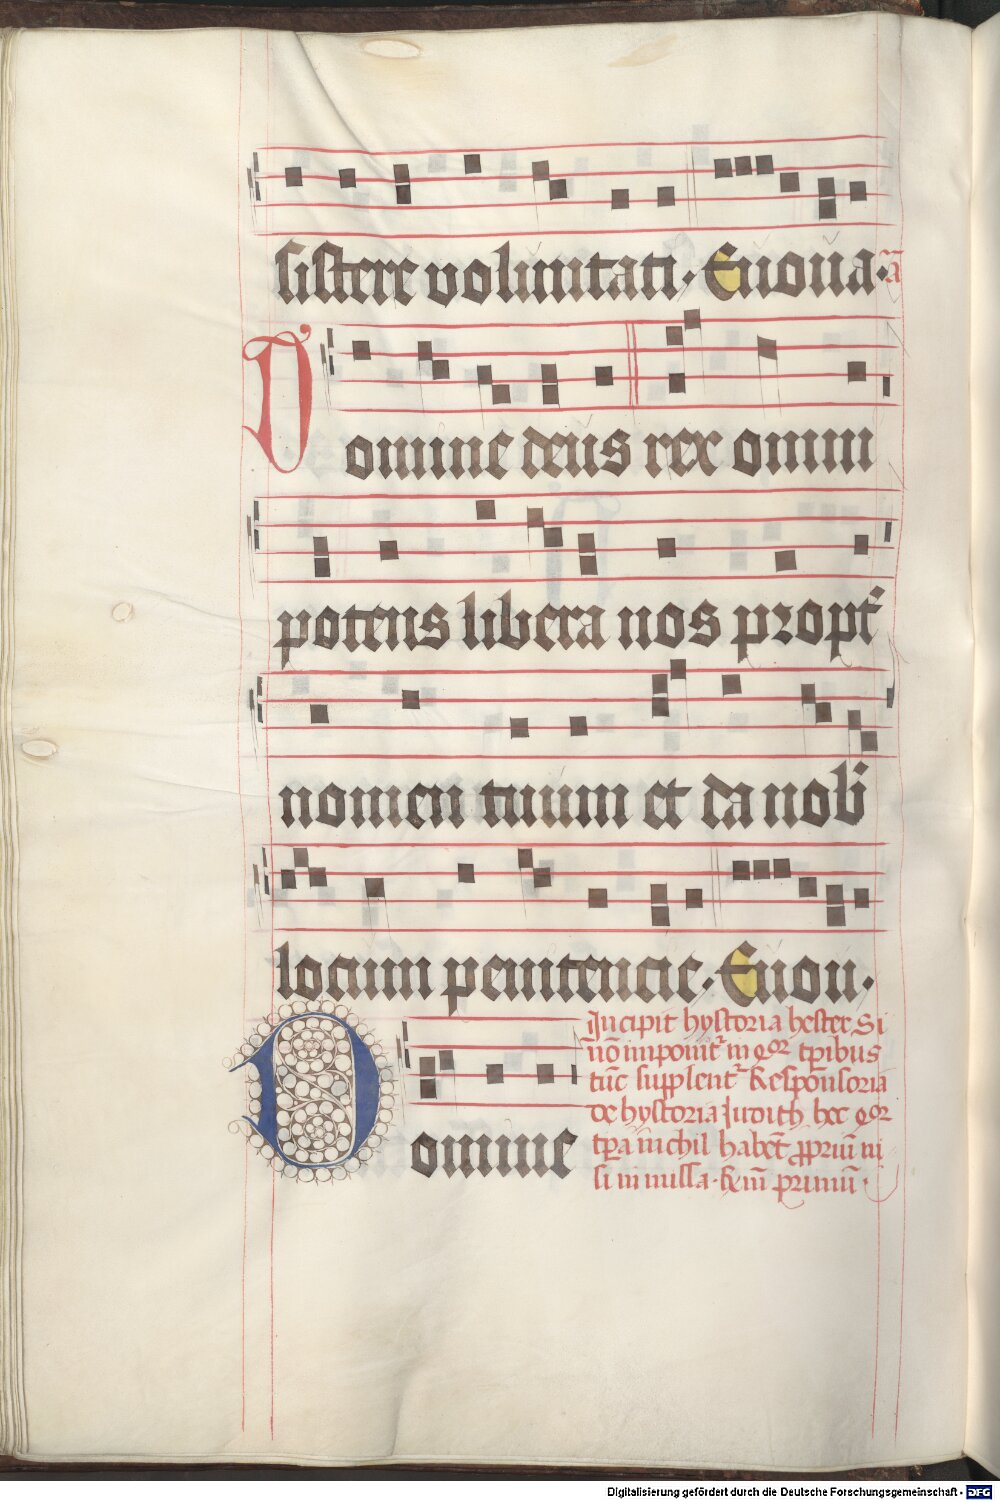 sistere voluntati. Euoua.
Domine deus rex omni
potens libera nos propt̄
nomen tuum et da nob̄
locum penitencie. Euou.
Incipit hystoria hester Si
nō imponit᷑ in qͦr tp̄ibus
tūc supplent᷑ Responsoria
de hystoria Judith hec qͦr
tp̄a nichil habēt ꝓpriū ni
si in missa. Rem̄ primū.
Domine
Digitalisierung gefördert durch die Deutsche Forschungsgemeinschaft - DFG